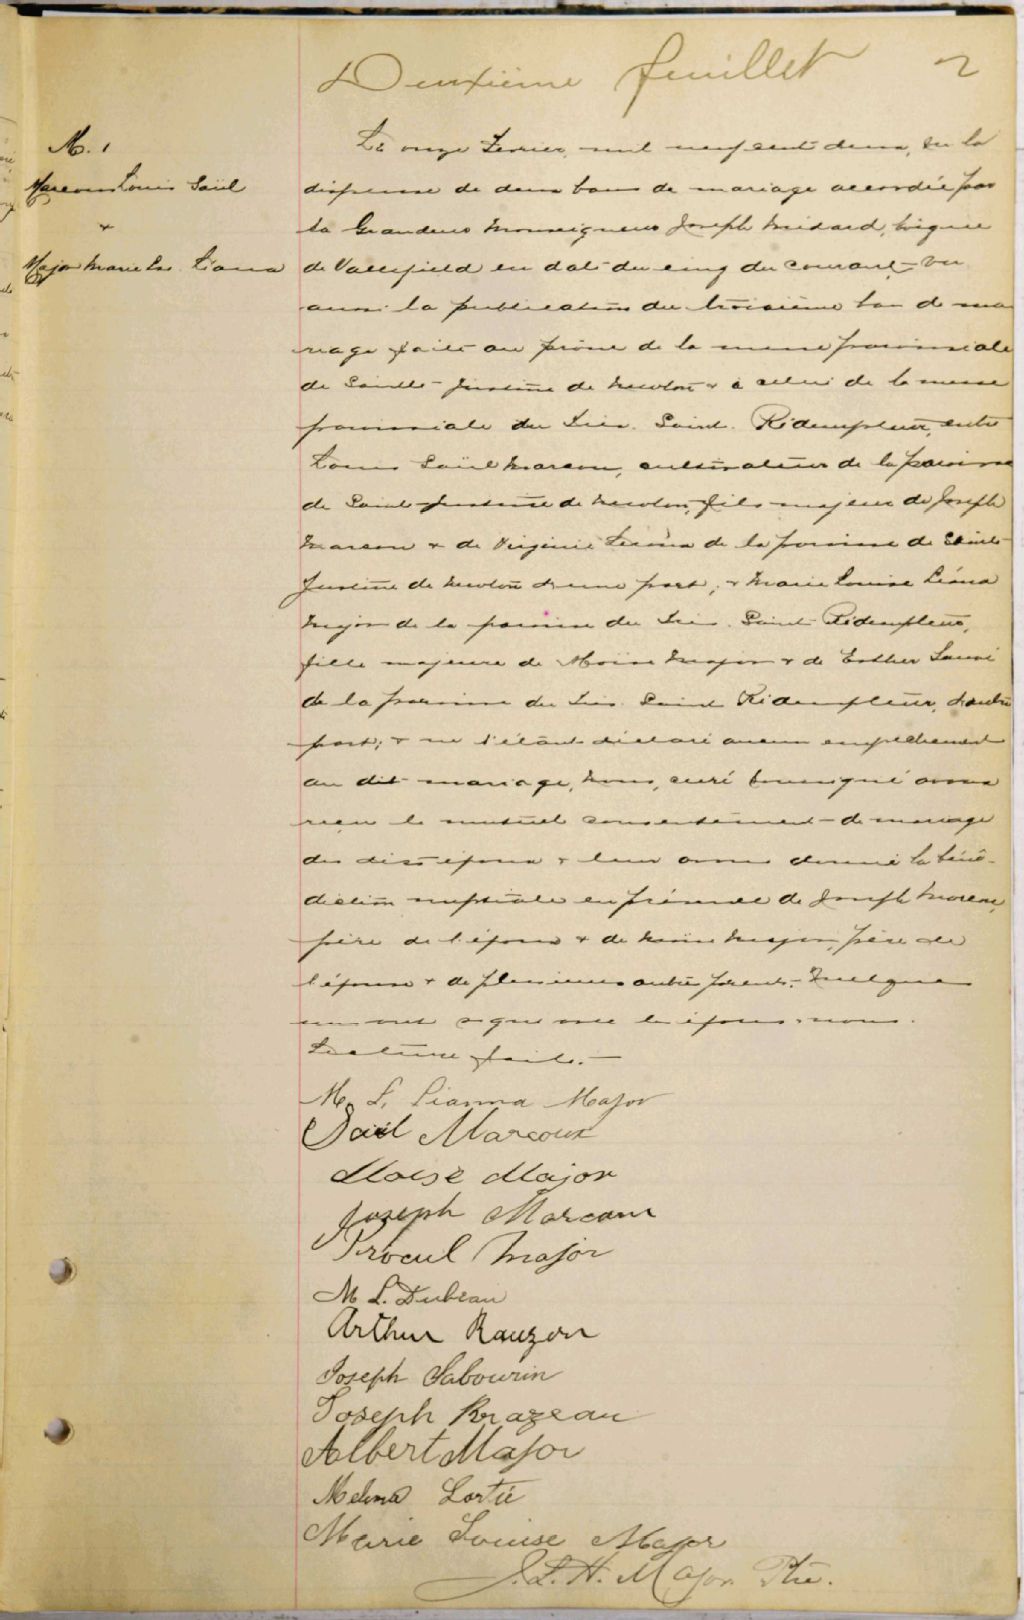 Deuxième feuillet 2
M. 1
Marcoux Louis Saül
+
Major Marie Ls. Liana
Le onze Fevrier, mil neuf cent deux, vu la
dispense de deux bans de mariage accordée par
Sa Grandeur Monseigneur Joseph Médard, Evêque
de Valleyfield en date du cinq du courant, vu
aussi la publication du troisième ban de ma
riage faite au prône de la messe paroissiale
de Sainte-Justine de Newton & à celui de la messe
paroissiale du Très. Saint. Rédempteur, entre
Louis Saül Marcoux, cultivateur de la paroisse
de Sainte-Justine de Newton, fils majeur de Joseph
Marcoux & de Virginie de la paroisse de Sainte-
Justine de Newton d'une part; & Marie Louise Léana
Major de la paroisse du Très. Saint Rédempteur,
fille majeure de Moïse Major & de Esther Sauvé
de la paroisse du Très. Saint Rédempteur, d'autre
part; & ne s'étant déclaré aucun empêchement
au dit mariage, Nous, curé soussigné avons
reçu le mutuel consentement de mariage
des dits époux & leur avons donné la béné-
diction nuptiale en présence de Joseph Marcoux,
père de l'époux & de Moïse Major, père de
l'épouse & de plusieurs autres parents. Quelques
uns ont signé avec les époux & nous.
Lecture faite.
M. L. Lianna Major
Saül Marcoux
Moïse Major
Joseph Marcoux
Procul Major
M L. Dubeau
Arthur Rauzon
Joseph Sabourin
Joseph Brazeau
Albert Major
Melina Lortie
Marie Louise Major
J. L. H. Major Ptre.